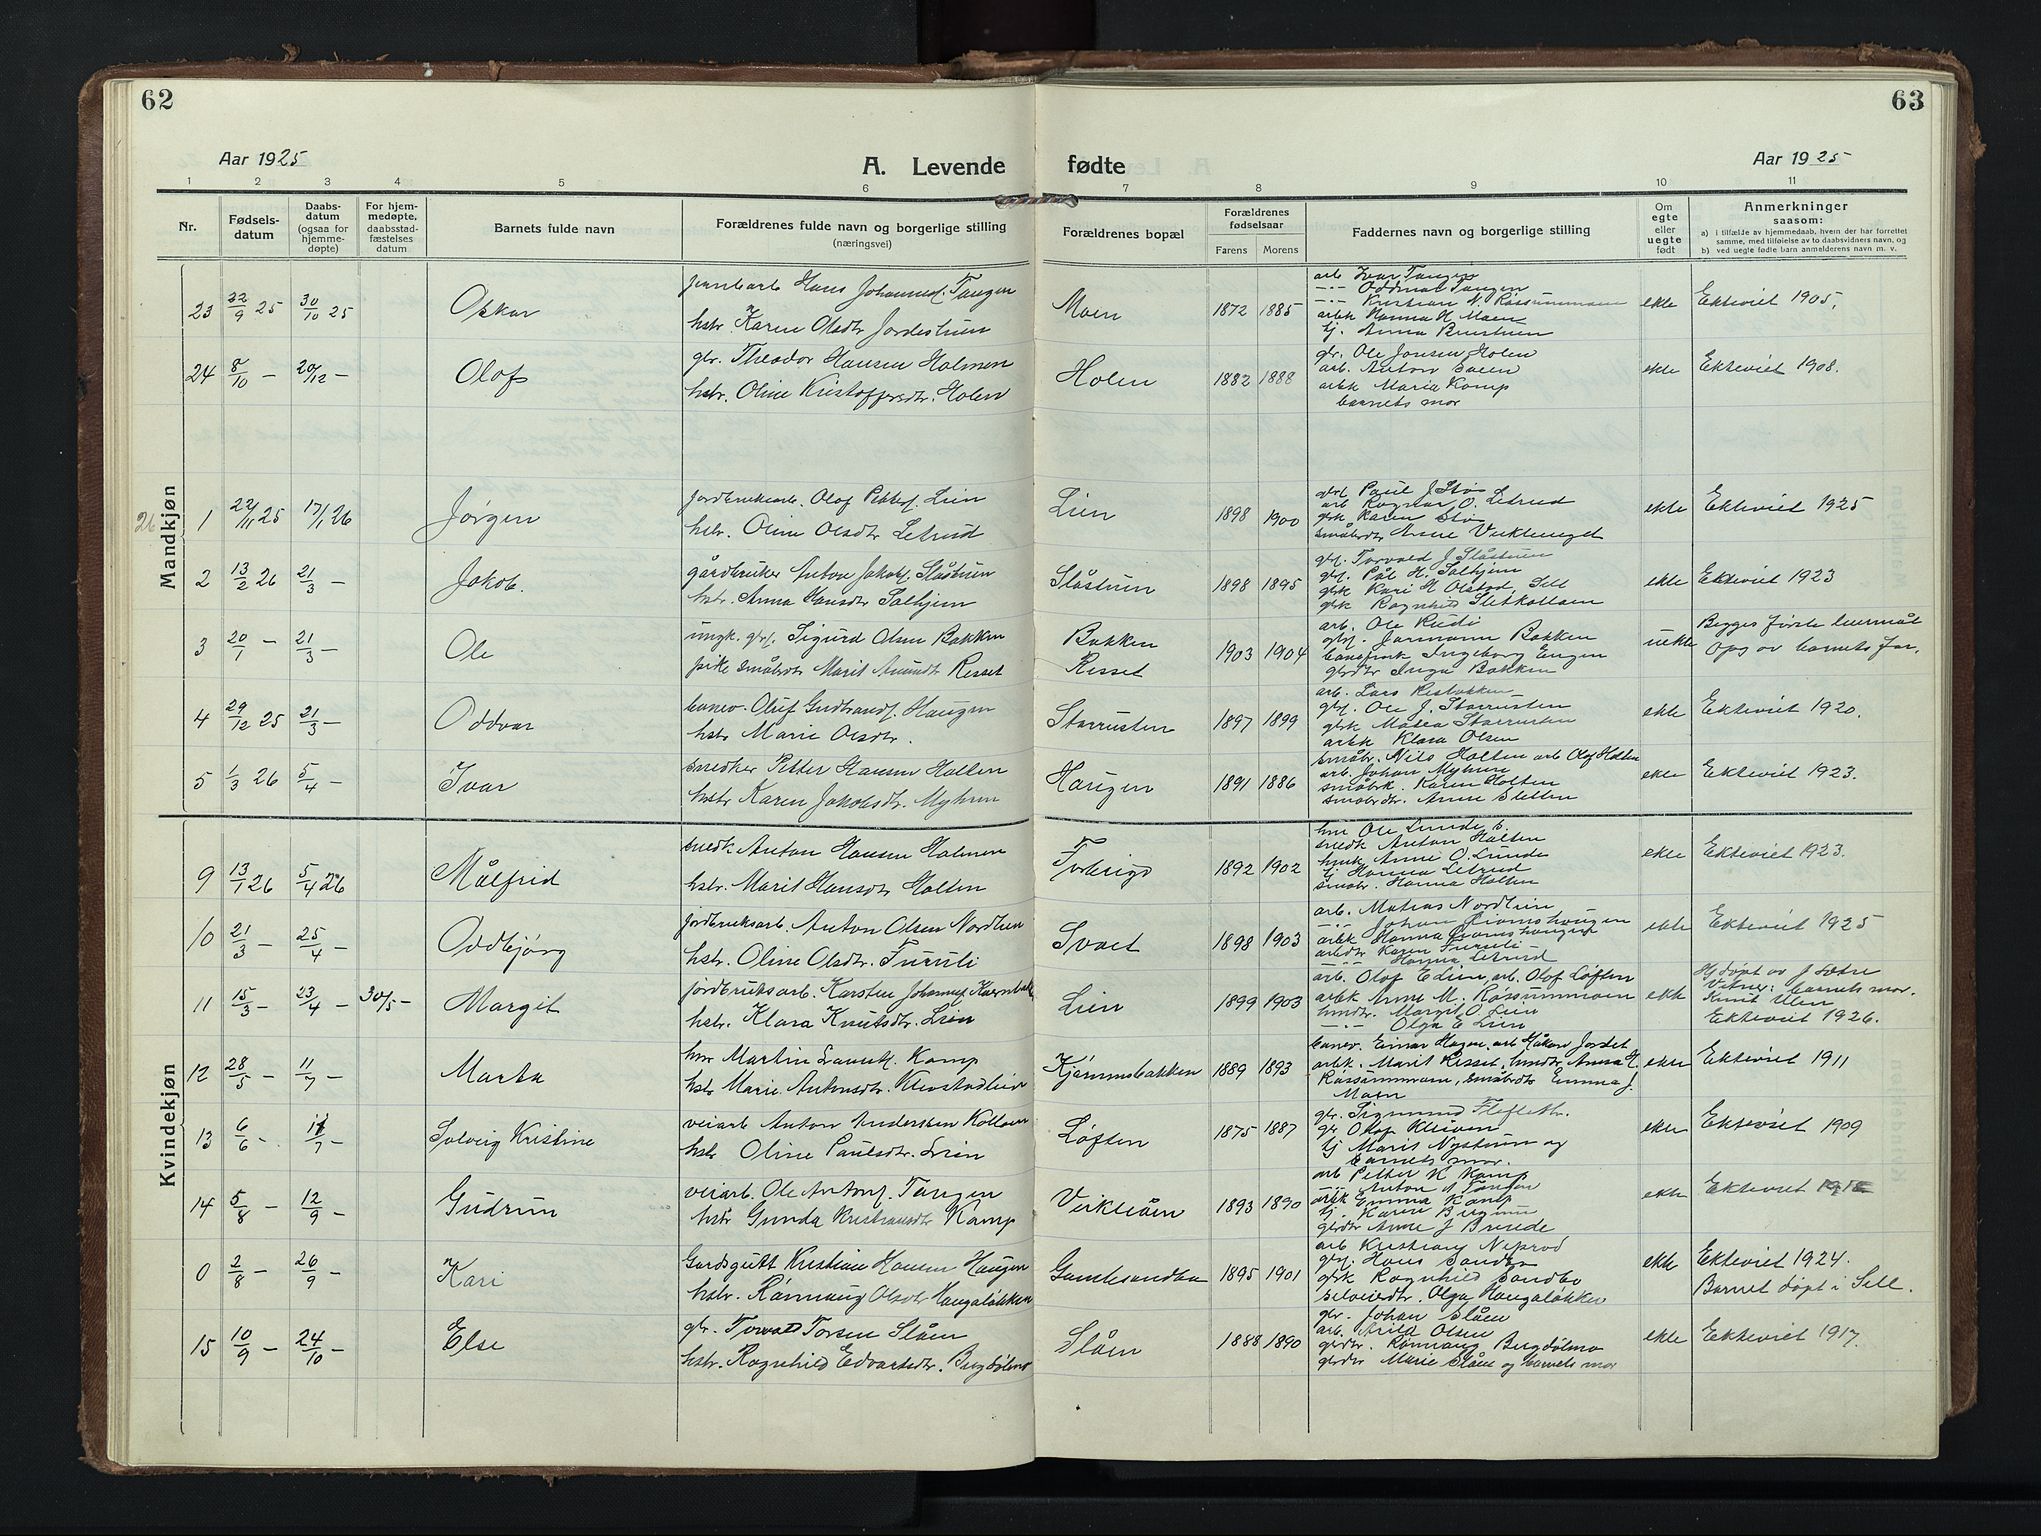 62
63
Aar 1925
A. Levende fødte
Aar 1925
1 2 3 4 5 6 7 8 9 10 11
Nr.
Fødsels-
datum
Daabs-
datum
(ogsaa for
hjemme-
døpte)
For hjem-
medøpte,
daabsstad-
fæstelses
datum
Barnets fulde navn
Forældrenes fulde navn og borgerlige stilling
(næringsvei)
Forældrenes bopæl
Forældrenes
fødselsaar
Farens Morens
Faddernes navn og borgerlige stilling
Om
egte
eller
uegte
født
Anmerkninger
saasom:
a) i tilfælde av hjemmedaab, hvem der har forrettet
samme, med tilføielse av to daabsvidners navn, og
b) ved uegte fødte barn anmelderens navn m. v.
Mandkjøn
23 22/9 25 30/10 25 Oskar
Hans Johannesf. Tangen
hstr. Karen Olsdtr Jordestuen
Moen 1872 1885
arb Ivar Tangen
-"- Oddmar Tangen
-"- Kristian N. Røssummoen
arbk Hanna H Moen
tj. Anna Brustuen
ekte Ekteviet 1905.
24 8/10 – 20/12 – Olof
gbr. Theodor Hansen Holmen
hstr. Oline Kristoffersdtr. Holen
Holen 1882 1888
gbr. Ole Jonsen Holen
arb. Anton
arbk Maria Kamp
barnets mor
ekte Ekteviet 1908.
26
1 22/11 25 17/1 26 Jørgen
jordbruksarb. Olof Pettersf. Lien
hstr. Oline Olsdtr Letrud
Lien 1898 1900
Paul J Stø
arb Ragnvar O. Letrud
gbk Karen Stø
småbrdtr Anne Veklemget
ekte Ekteviet 1925
2 13/2 26 21/3 – Jakob.
gårdbruker Anton Jakobf. Slåstuen
hstr. Anna Hansdtr Solhjem
Slåstuen 1898 1895
gbf. Torvald J Slåstuen
gbf. Pål H. Solhjem
gbk Kari H Olstad, Sell
gbk Ragnhild Sletkolloen
ekte Ekteviet 1923
3 20/1 – 21/3 – Ole
ungk. gbf. Sigurd Olsen Bakken
pike småbrdtr Marit Amundt Resset
Bakken
Resset
1903 1904
arb. Ole Rudi
gbf. Jormann Bakken
Ingeborg Engen
gbrdtr Inga Bakken
uekte Begges første leiermål
Opg av barnets far.
4 29/12 25 21/3 – Oddvar
banev. Oluf Gudbrandf. Haugen
hstr Marie Olsdtr.
Storrusten 1897 1899
arb. Lars Restokken
gbf. Ole J. Storrusten
gbk Matea Storrusten
arbk Klara Olsen
ekte Ekteviet 1920.
5 1/3 26 5/4 – Ivar
snedker Petter Hansen Holten
hstr Karen Jakobsdtr. Myhren
Haugen 1891 1886
småbr. Nils Holten arb Olof Holten
arb. Johan Myhren
småbk. Karen Holten
småbrdtr. Anne Sletten
ekte Ekteviet 1923.
Kvindekjøn
9 13/1 26 5/4 26 Målfrid
snedk Anton Hansen Holmen
hstr. Marit Hansdtr Holten
1892 1902
hm Ole Lunde s.
snedk Anton Holten
hmk Anne O. Lunde
tj Hanna Letrud
småbr. Hanna Holten
ekte Ekteviet 1923.
10 21/3 – 25/4 – Oddbjørg
jordbruksarb. Anton Olsen Nordlien
hstr. Oline Olsdtr. Furuli
Svaet 1898 1903
arb. Matias Nordlien
-"- Johan Øiomshaugen
arbk Hanna Øiomshaugen
arbdtr Karen Furuli
-"- Hanna Letrud
ekte Ekteviet 1925
11 15/3 – 23/4 – 30/5 – Margit
jordbruksarb. Karsten Johannesf
hstr. Klara Knutsdtr. Lien
Lien 1899 1903
arb. Olof E Lien, arb. Olof Løften
arbk Anne M. Røssummoen
hmdtr. Margit O Lien
-"- Olga E Lien
ekte Hj.døpt av J Sætre
Vitner: barnets mor.
Knut Ulen
Ektevist 1926.
12 28/5 – 11/7 – Marta
hm Martin Kamp
hstr Marie Antonsdtr. Klevstadlien
Kjørumsbakken 1889 1893
banev. Einar Hagen, arb Håkon Jordet
arbk. Marit Resset, hmdtr Anna H.
Røssummoen, småbrdtr Emma J.
Moen
ekte Ektevist 1911
13 6/6 – 11/7 – Solveig Kristine
veiarb Anton Anderssen Kolloen
hstr Oline Paulsdtr. Lien
Løften 1875 1887
gbr. Sigmund
gbr Olof Kleiven
tj Marit Nystuen og
barnets mor.
ekte Ektevist 1909
14 5/8 – 12/9 – Gudrun
veiarb. Ole Antonf. Tangen
hstr Gunda Kristiansdtr Kamp
Vekleåen 1893 1890
arb Petter K Kamp
-"- Anton A Tangen
arbk Emma Kamp
tj. Karen Bergum
gbdtr Anne J Breide
ekte Ektevist
0 2/8 – 26/9 – Kari
Gardsgutt Kristian Hansen Haugen
hstr. Rønnaug Olsdtr Haugaløkken
Gamlesandbo 1895 1901
arb Kristian Neprød
gbf. Hans Sandbo
gbk Ragnhild Sandbo
selveierdtr. Olga Haugaløkken
ekte Ektevist 1924.
Barnet døpt i Sell.
15 10/9 – 24/10 – Else
gbr. Torvald Torsen Slåen
hstr. Ragnhild Edvartsdtr.
Slåen 1888 1890
gbr. Johan Slåen
arb. Arild Olsen
gbrdtr. Rønnaug Bergdølmo
gbrdtr Marie Slåen og barnets mor
ekte Ektevist 1917.